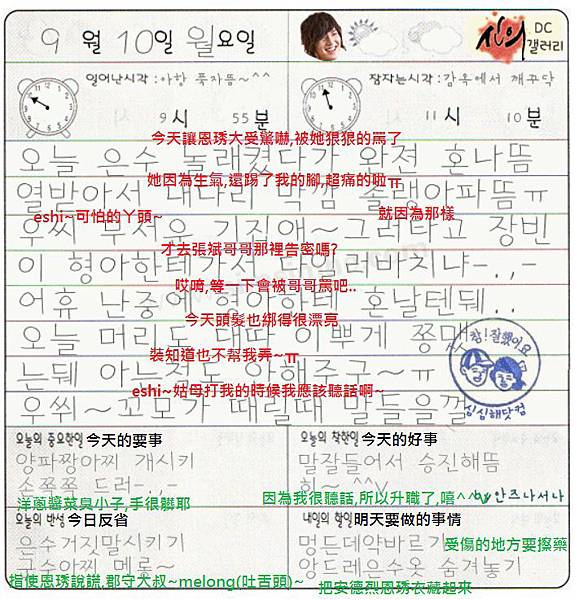 9 월 10일 월요일
신의 DC 갤러리
일어난시각 : 아항 푹자뜸~^^
잠자는시각 : 감옥에서 깨꾸닥
9시 55분
11시 10분
今天讓恩琇大受驚嚇,被她狠狠的罵了
오늘 은수 놀래켰다가 완전 혼나뜸
她因為生氣,還踢了我的腳,超痛的啦ㅠ
열받아서 내다리 막깜 졸랭아파뜸ㅠ
eshi~可怕的丫頭~
就因為那樣
우씨 무서운 기집애~그러타고 장빈
才去張斌哥哥那裡告密嗎?
이 형아한테가서 다일러바치냐-.,-
哎唷,等一下會被哥哥罵吧..
어휴 난중에 형아한테 혼날텐뒈..
今天頭髮也綁得很漂亮
오늘 머리도 대따 이뿌게 쫑매
裝知道也不幫我弄~ㅠ
는뒈 아는척도 안해주구~ㅠ
eshi~姑母打我的時候我應該聽話啊~
우씌~꼬모가 때릴때 말들을껄
참! 잘했어요
심심해닷컴
오늘의 중요한일 今天的要事
오늘의 착한일 今天的好事
양파짱아찌 개시키
말잘들어서 승진해뜸
손쪽쪽 드러-.,-
히~ ^^v
洋蔥醬菜臭小子,手很髒耶
因為我很聽話,所以升職了,嘻^^v
by 안즈나서나
오늘의 반성 今日反省
내일의 할일 明天要做的事情
은수거짓말시키기
멍든데약바르기
受傷的地方要擦藥
군수아찌 메롱~
앙드레은수옷 숨겨놓기
指使恩琇說謊,郡守大叔~melong(吐舌頭)~
把安德烈恩琇衣藏起來